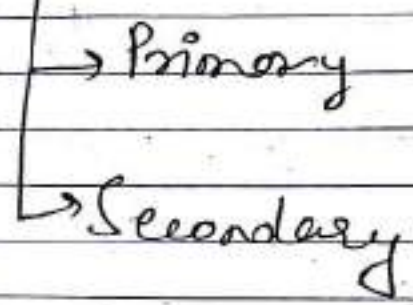 → Primary
→ Secondary